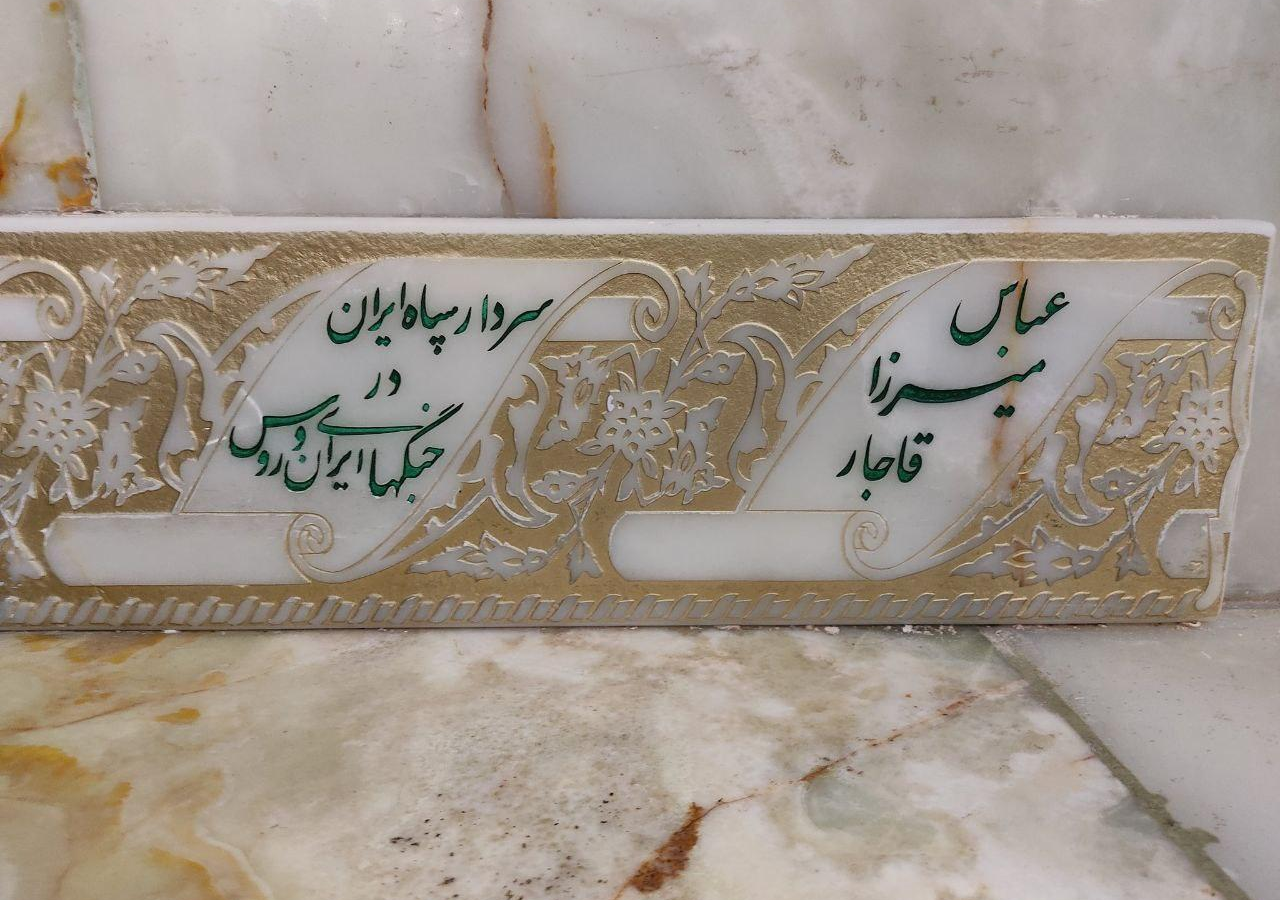 عباس
میرزا
قاجار
سردار سپاه ایران
در
جنگهای ایران و روس